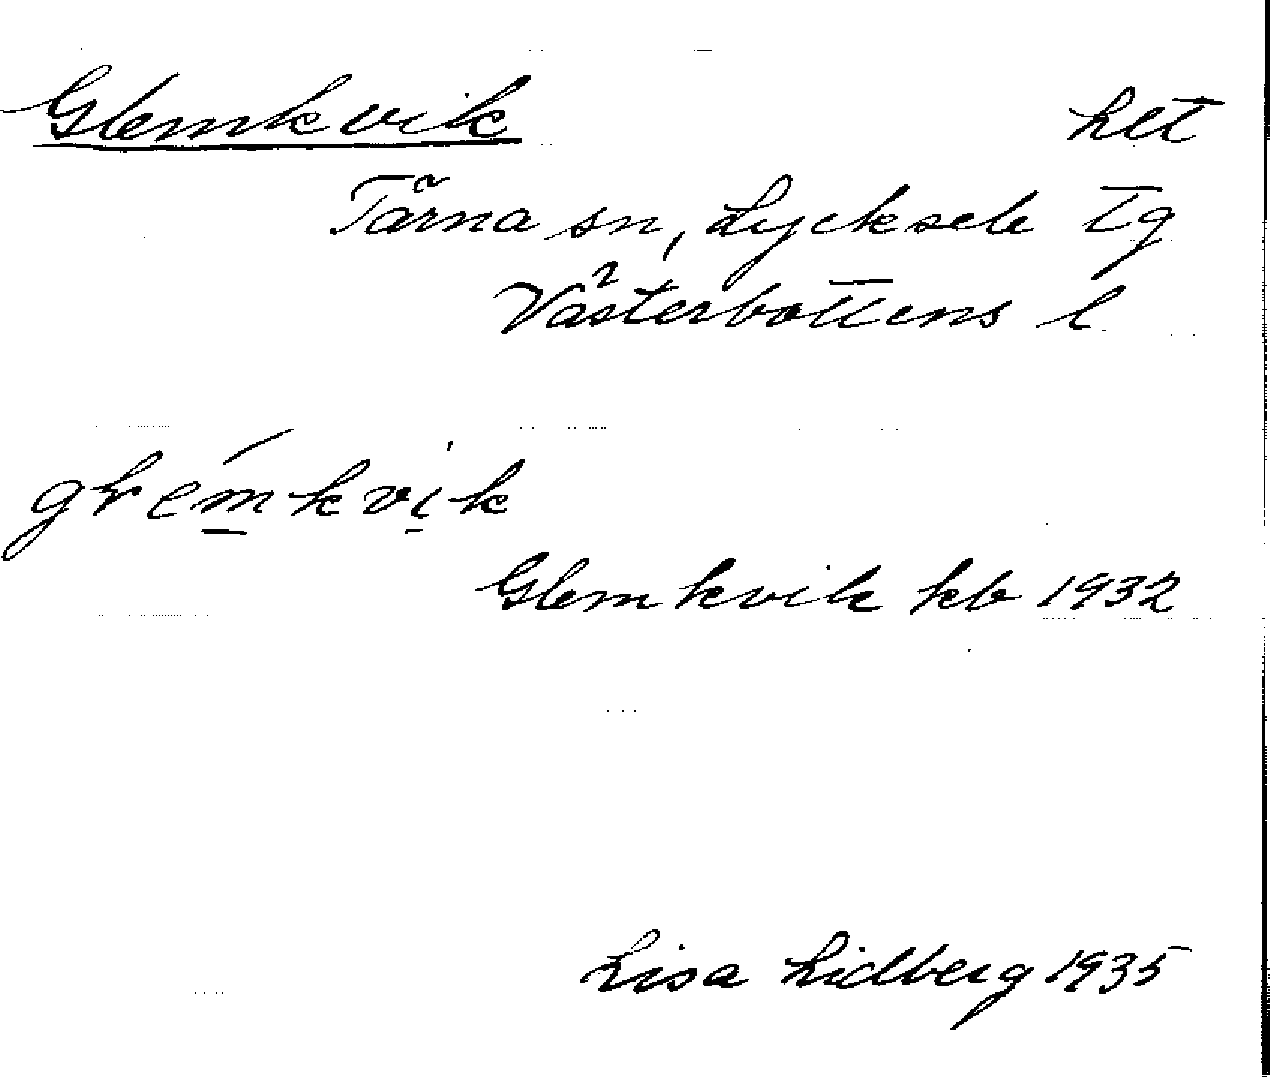 Glemkvik hlt
Tärna sn, Lycksele tg
Västerbottens l
glémkvik
Glemkvik kb 1932
Lisa Lidberg 1935